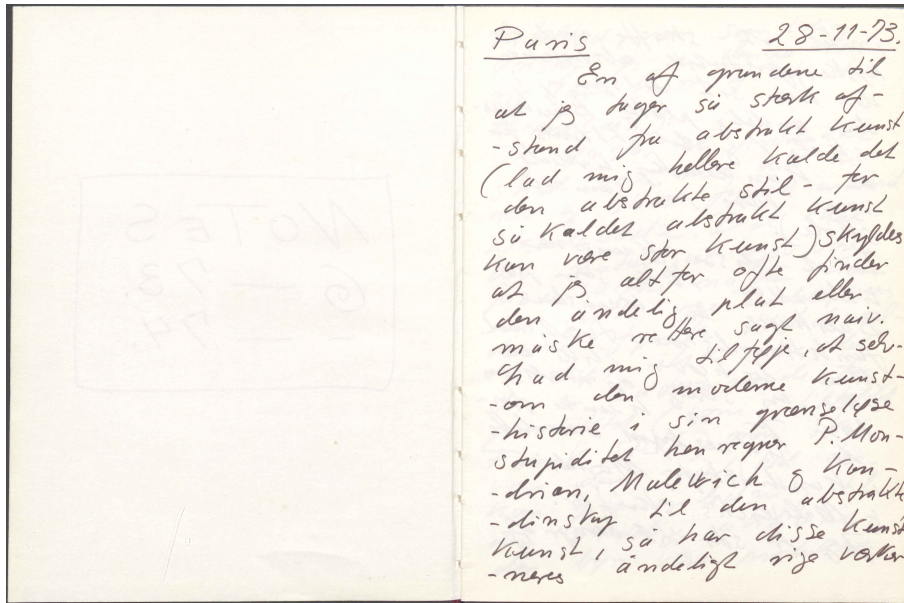 Paris 28-11-73.
En af grundene til
at jeg tager så stærk af-
-stand fra abstrakt kunst
(lad mig hellere kalde det
den abstrakte stil - for
så kaldet abstrakt kunst
kan være stor kunst) skyldes
at jeg altfor ofte finder
den åndelig plat eller
måske rettere sagt naiv.
(Lad mig tilføje, at selv-
-om den moderne kunst-
-historie i sin grænseløse
stupiditet henregner P. Mon-
-drian, Malewich og Kan-
-dinsky til den abstrakte
kunst, så har disse kunst
-neres åndeligt rige værker